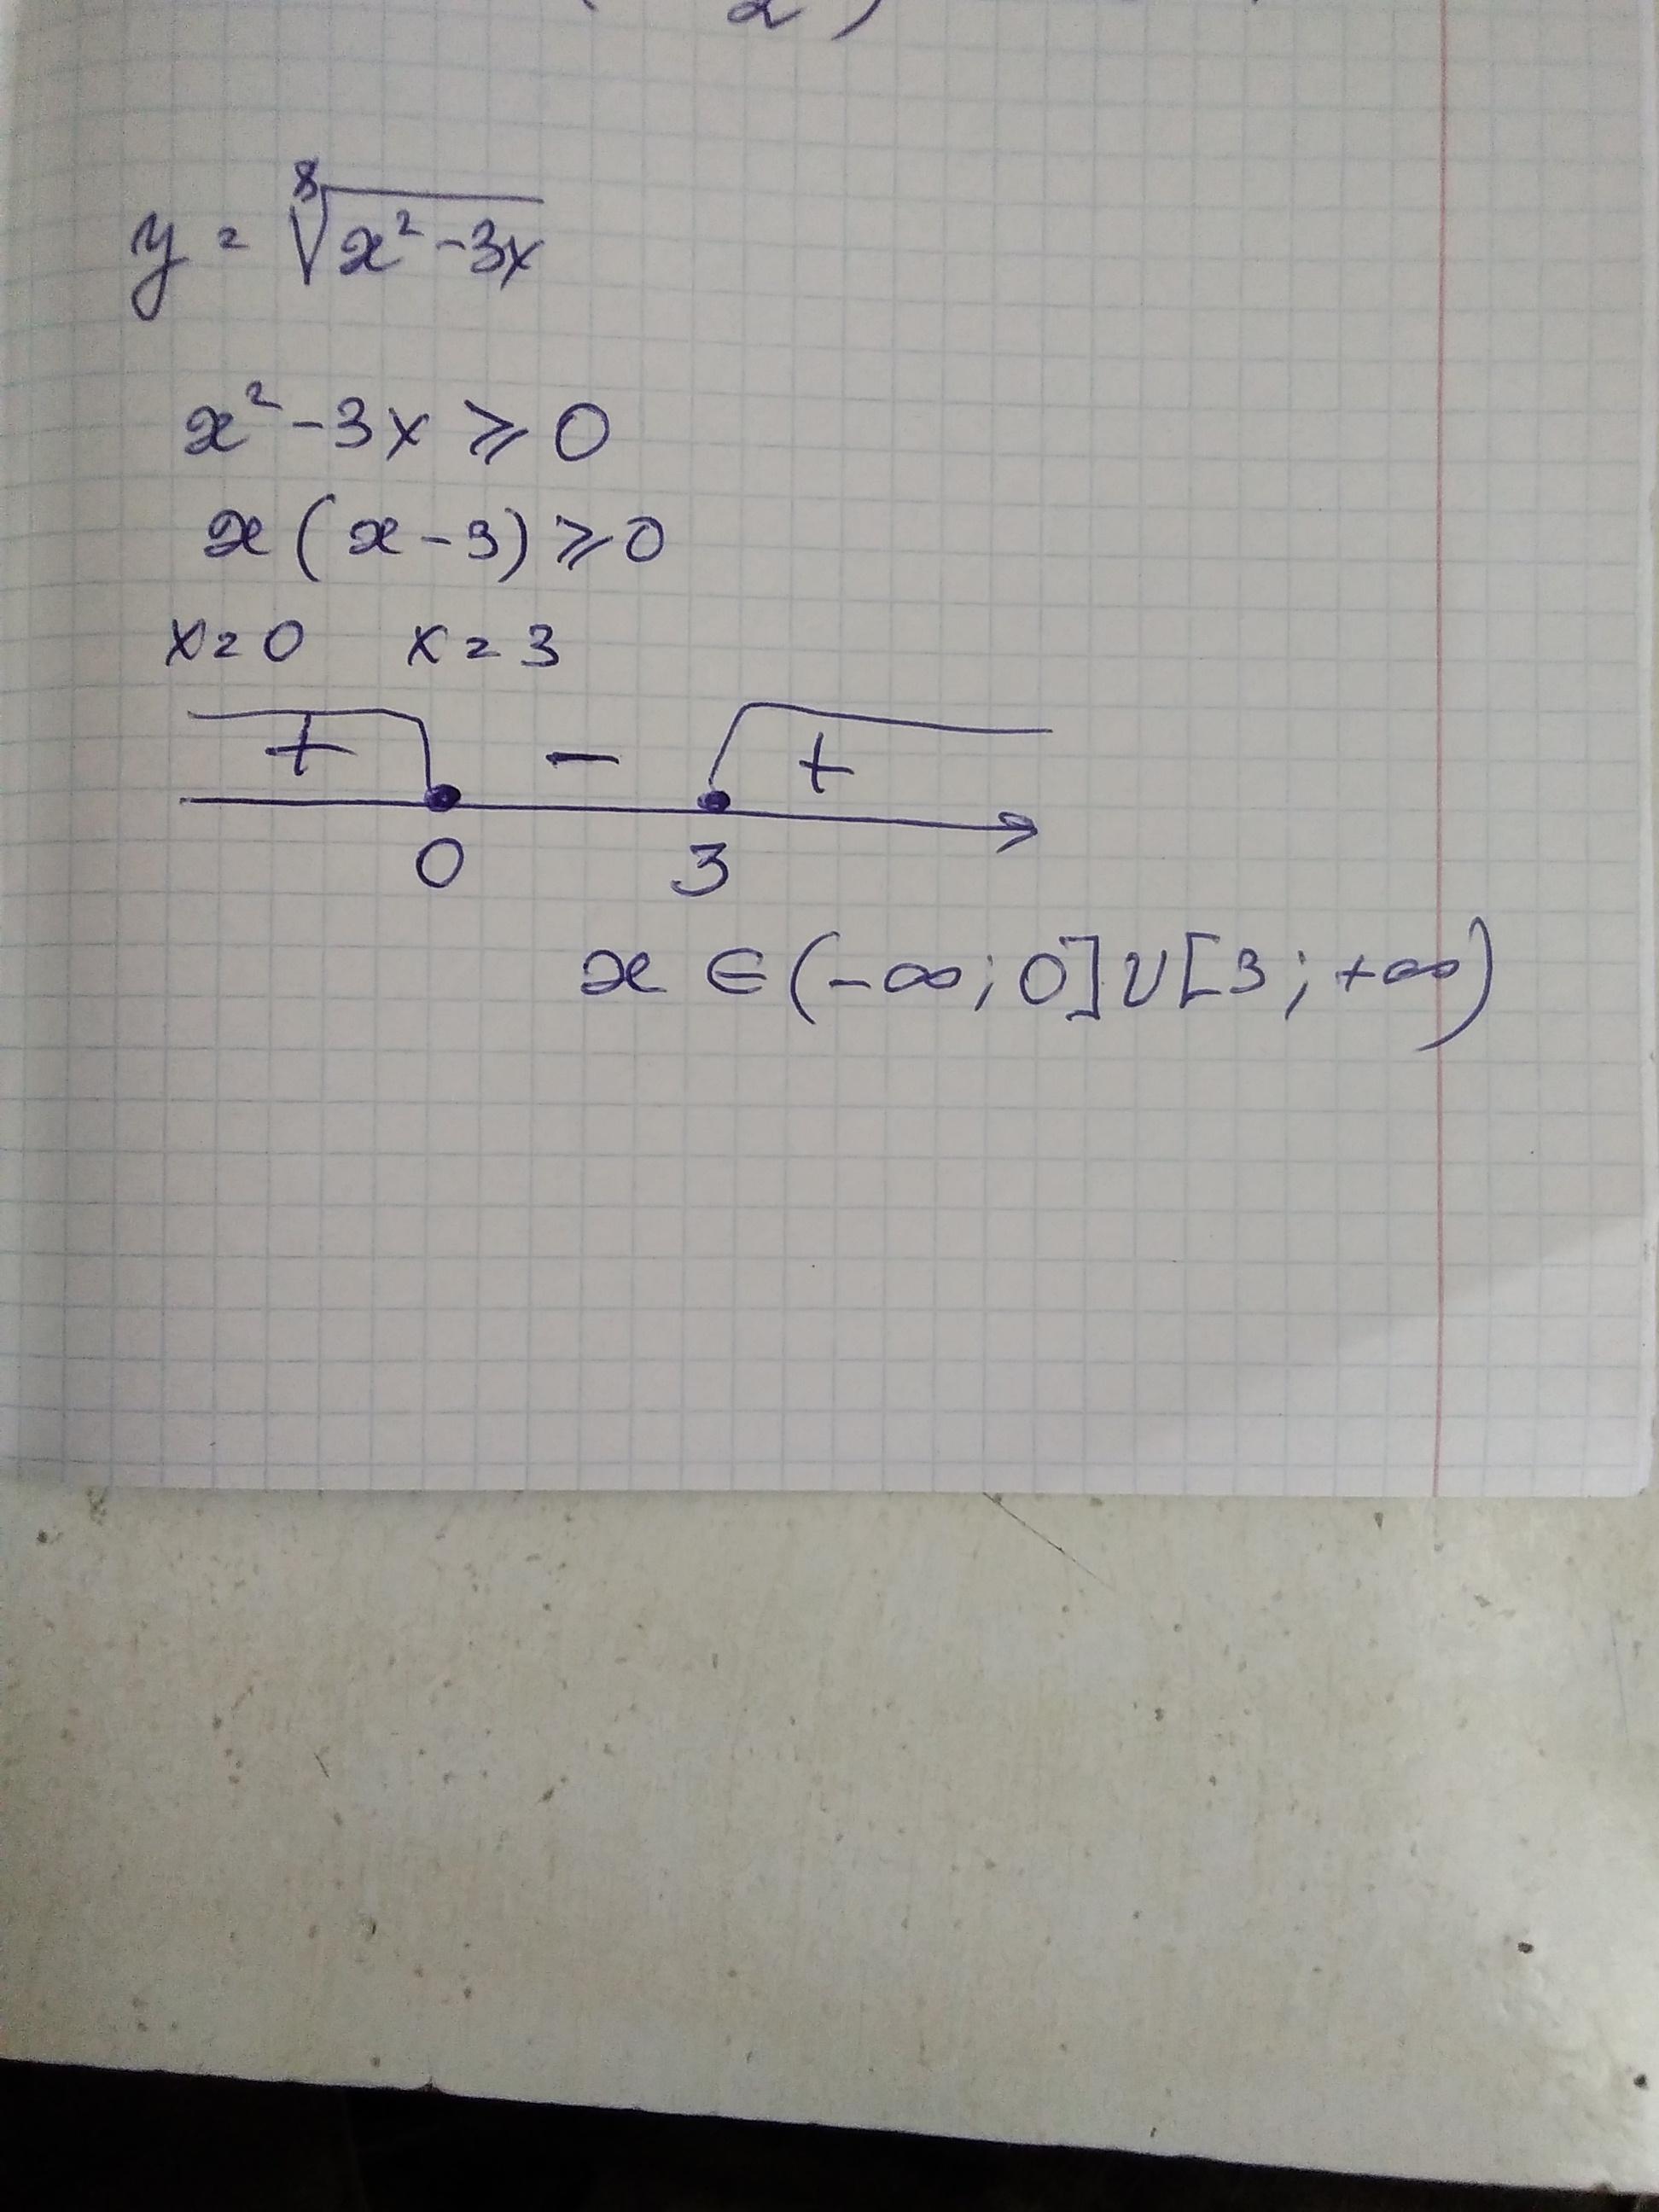 2)
y = ⁸√(x² - 3x)
x² - 3x ⩾ 0
x(x - 3) ⩾ 0
x = 0 x = 3
+ - +
0 3
x ∈ (-∞; 0] ∪ [3; +∞)